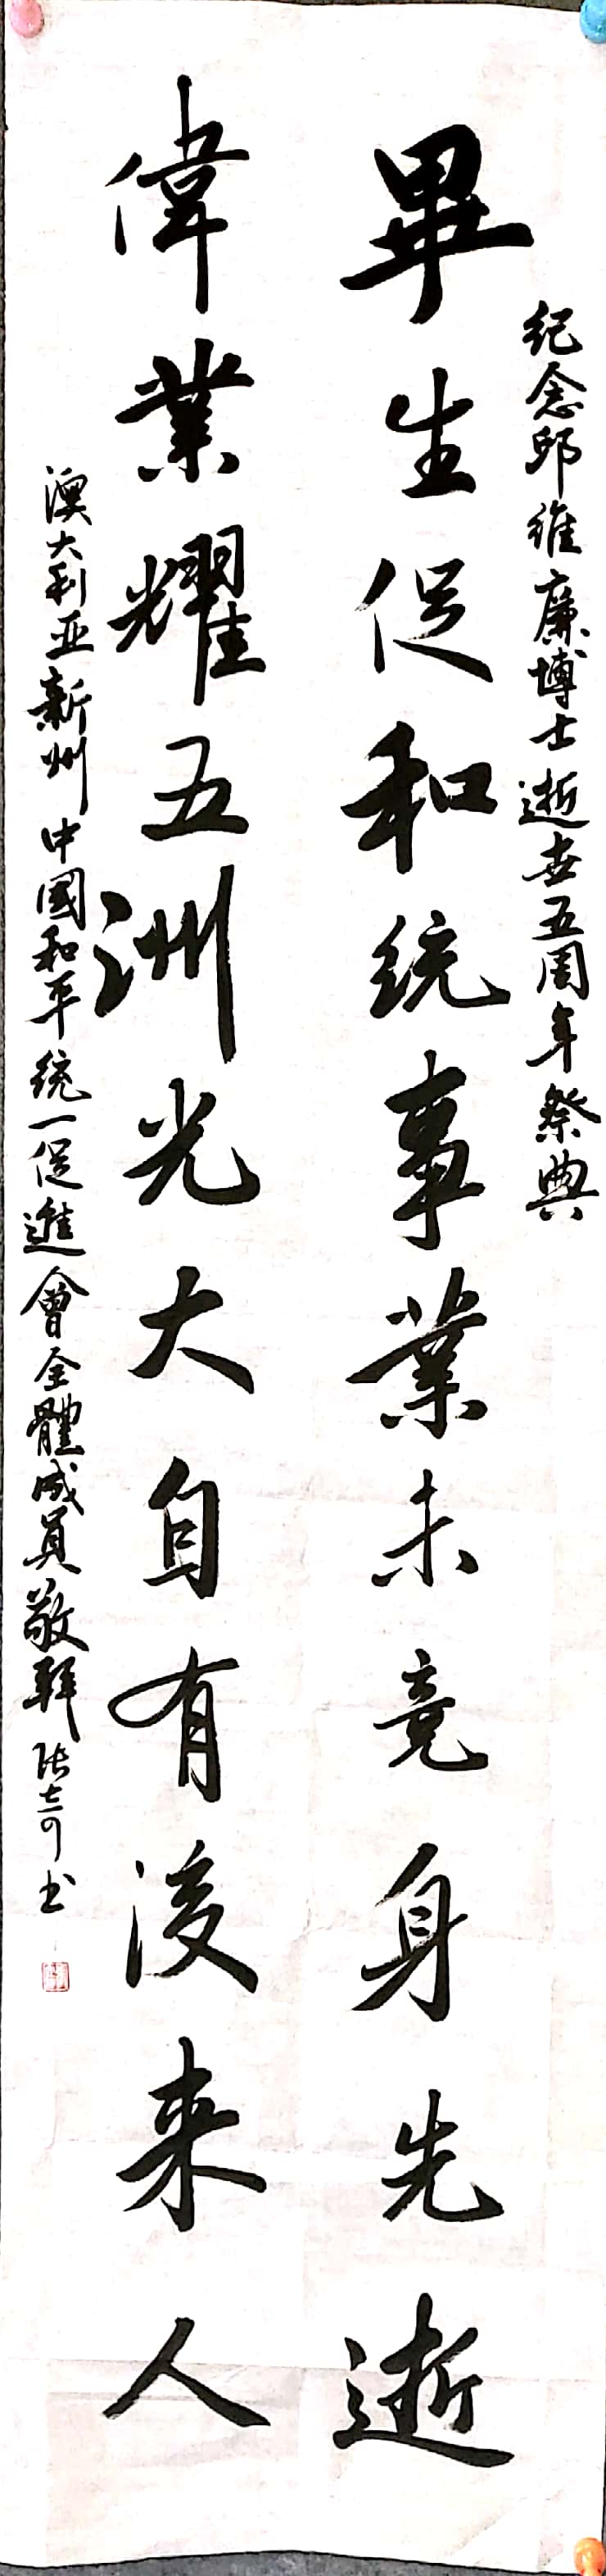 纪念邱維廉博士逝世五周年祭典
畢生促和统事業未竟身先逝
偉業耀五洲光大自有後来人
澳大利亚新州中國和平統一促進會全體成員敬拜 张志可书